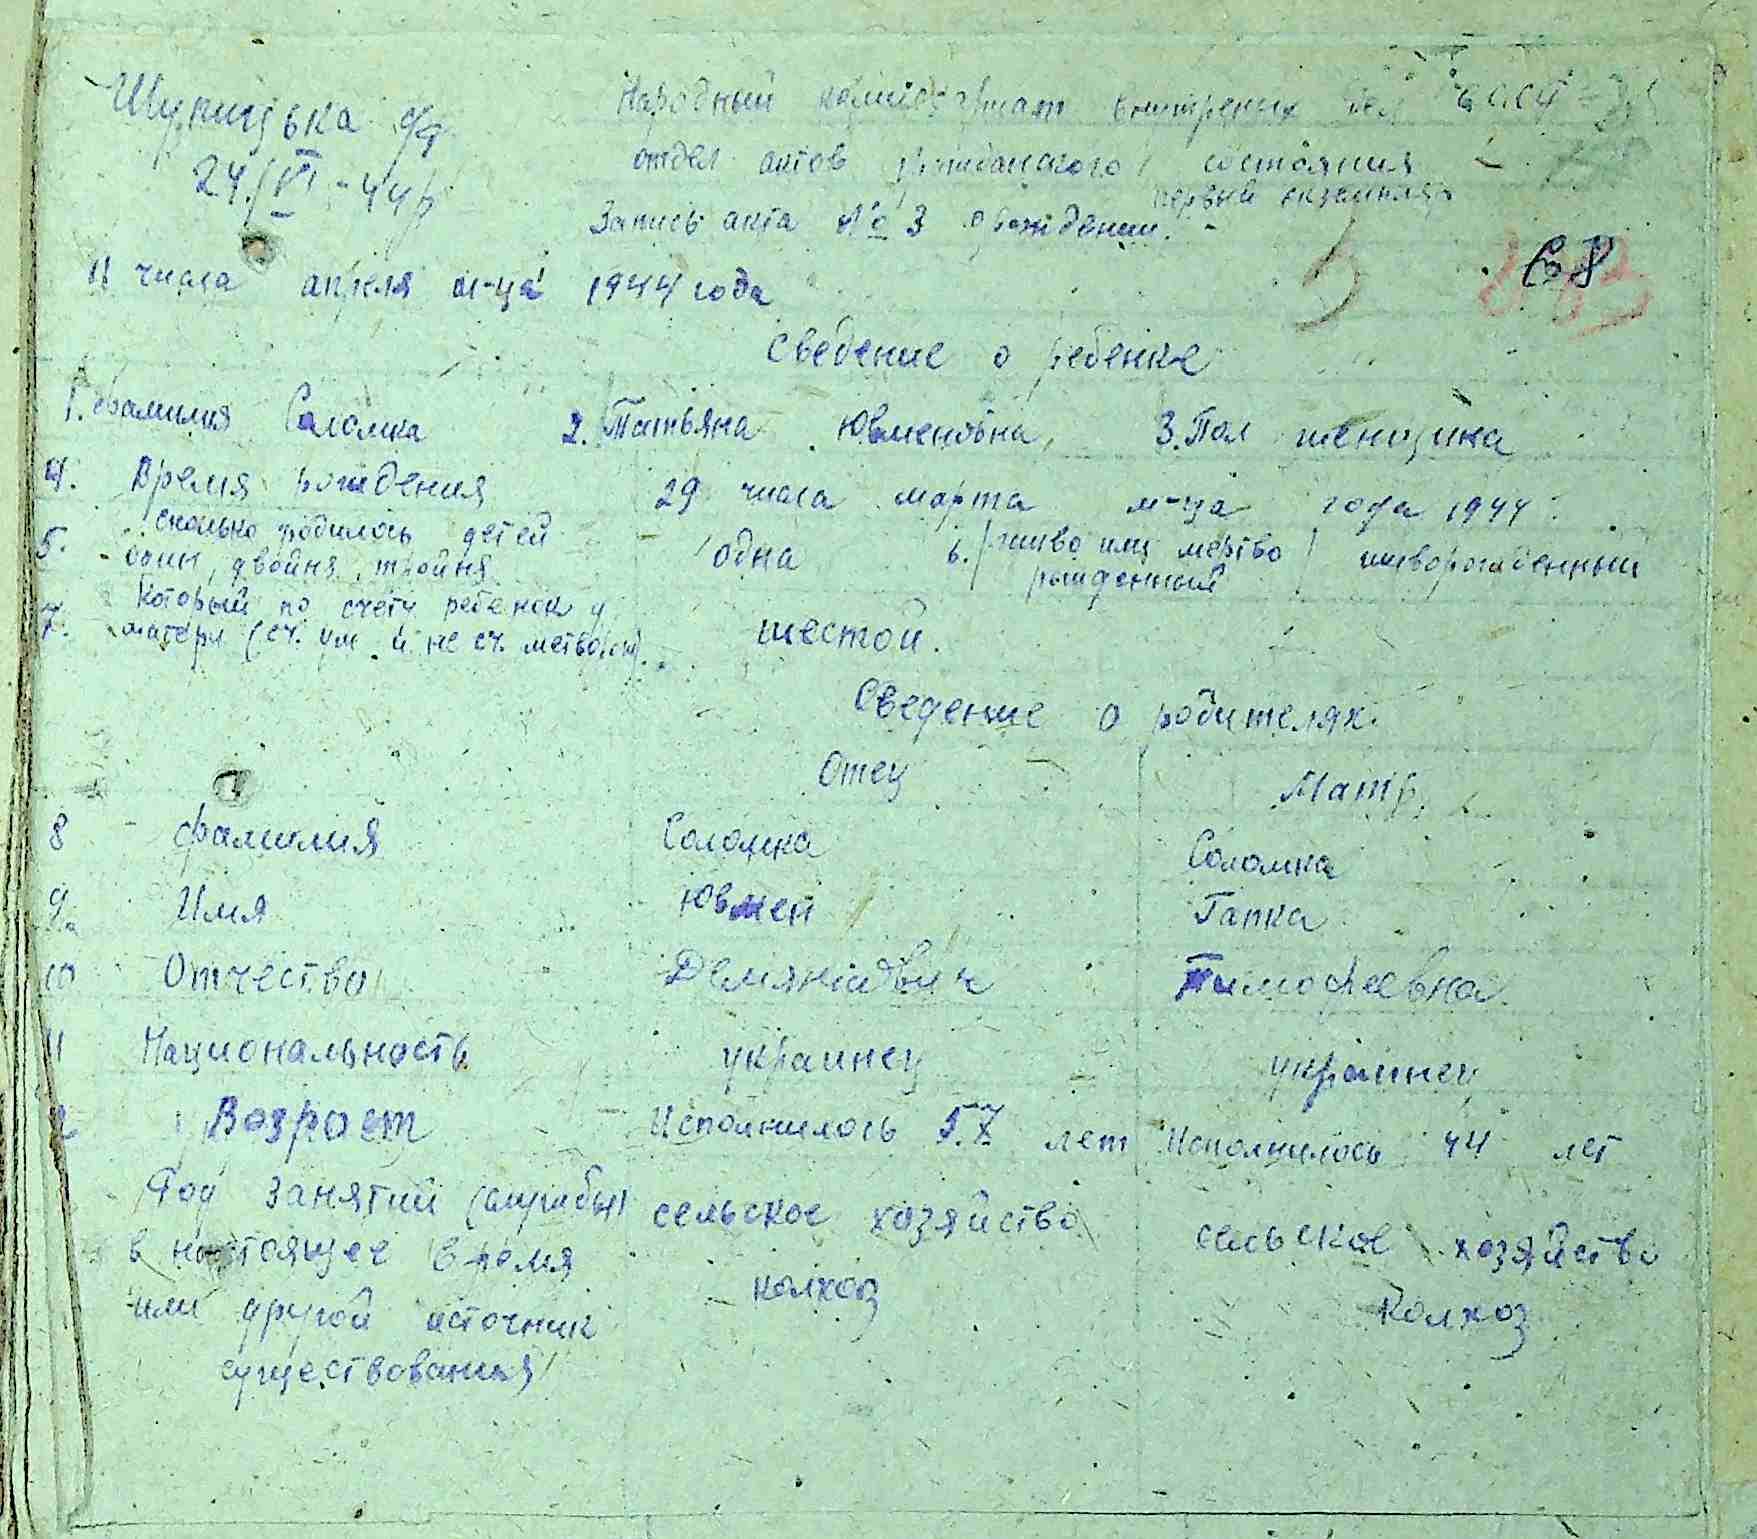 Шупицька с/р
24/VI-44р
Народный комисариат внитрених дел СССР
отдел актов гражданского состояния
первый экземпляр
Запись акта № 3 о рождении.
68
11 числа апреля м-ца 1944 года
Сведение о ребенке
1. Фамилия Саломка 2. Татьяна Ювменовна, 3. Пол женщина
4. Время рождения 29 числа марта м-ца года 1944
5. сколько родилось детей
один, двойня, тройня одна 6. / живо или мертво рожденный / живорожденный
7. Который по счету ребенок у
матери (сч. ум. и не сч. метворож). шестой.
Сведение о родителях.
Отец Матр.
8 Фамилия Соломка Соломка
9. Имя Ювмен Гапка
10 Отчество Демянювич Тимофеевна
11 Национальность украинец украинец
12 Возраст Исполнилось 57 лет Исполнилось 44 лет
Род занятий (службы) сельское хозяйство сельское хозяйство
в настоящее время колхоз Колхоз
или другой источник
существования